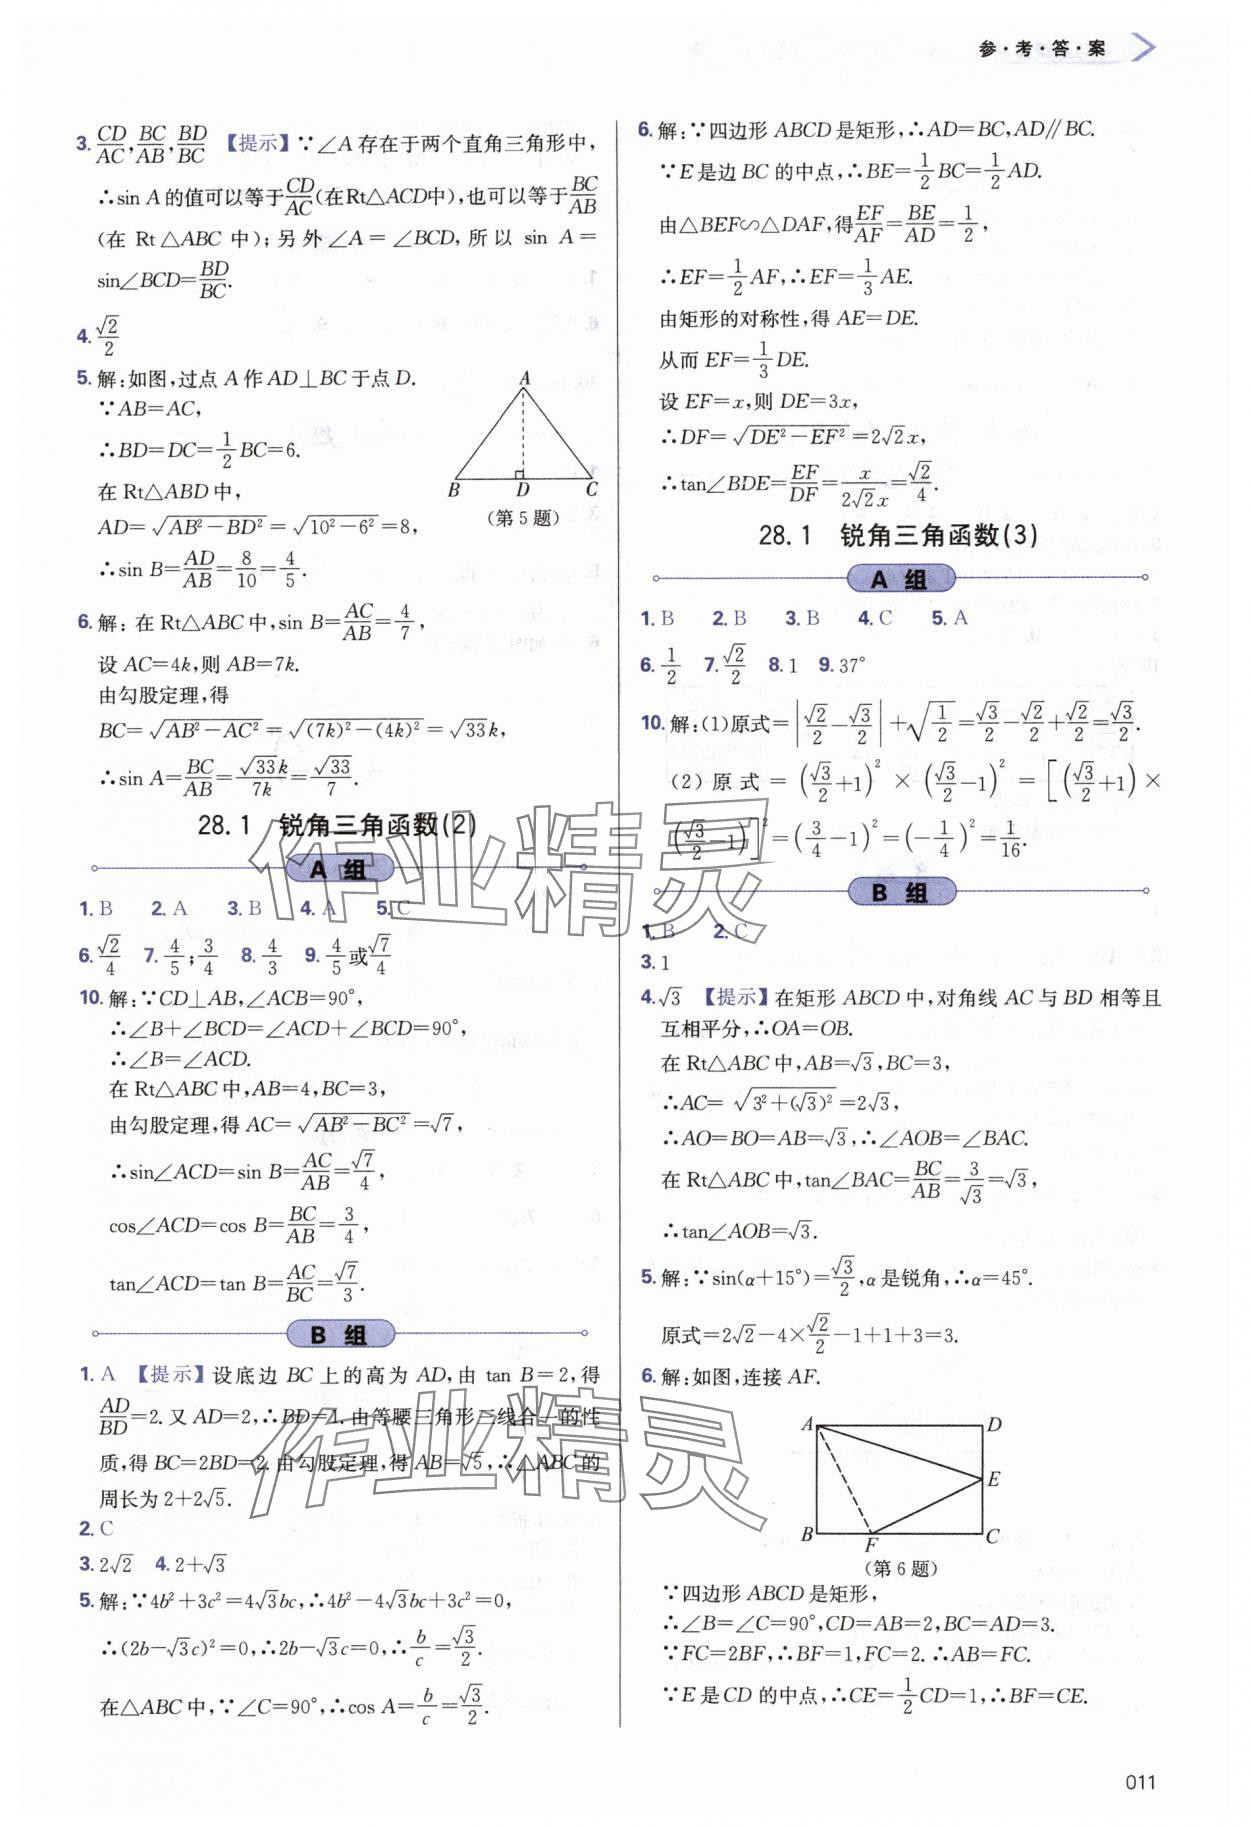 参·考·答·案
3. CD/AC, BC/AB, BD/BC 【提示】∵∠A存在于两个直角三角形中,
∴sin A的值可以等于CD/AC(在Rt△ACD中),也可以等于BC/AB
(在 Rt△ABC 中);另外∠A=∠BCD,所以 sin A=
sin∠BCD=BD/BC.
4. √2/2
5. 解:如图,过点A作AD⊥BC于点D.
∵AB=AC,
∴BD=DC=1/2BC=6.
在Rt△ABD中,
AD=√(AB²-BD²)=√(10²-6²)=8,
∴sin B=AD/AB=8/10=4/5.
A
B D C
(第5题)
6. 解:在Rt△ABC中,sin B=AC/AB=4/7,
设AC=4k,则AB=7k.
由勾股定理,得
BC=√(AB²-AC²)=√((7k)²-(4k)²)=√33k,
∴sin A=BC/AB=√33k/7k=√33/7.
28.1 锐角三角函数(2)
A 组
1. B 2. A 3. B 4. A 5. C
6. √2/4 7. 4/5;3/4 8. 4/3 9. 4/5或√7/4
10. 解:∵CD⊥AB,∠ACB=90°,
∴∠B+∠BCD=∠ACD+∠BCD=90°,
∴∠B=∠ACD.
在Rt△ABC中,AB=4,BC=3,
由勾股定理,得AC=√(AB²-BC²)=√7,
∴sin∠ACD=sin B=AC/AB=√7/4,
cos∠ACD=cos B=BC/AB=3/4,
tan∠ACD=tan B=AC/BC=√7/3.
B 组
1. A 【提示】设底边BC上的高为AD,由tan B=2,得
AD/BD=2.又AD=2,∴BD=1.由等腰三角形三线合一的性
质,得BC=2BD=2.由勾股定理,得AB=√5,∴△ABC的
周长为2+2√5.
2. C
3. 2√2 4. 2+√3
5. 解:∵4b²+3c²=4√3bc,∴4b²-4√3bc+3c²=0,
∴(2b-√3c)²=0,∴2b-√3c=0,∴b/c=√3/2.
在△ABC中,∵∠C=90°,∴cos A=b/c=√3/2.
6. 解:∵四边形ABCD是矩形,∴AD=BC,AD∥BC.
∵E是边BC的中点,∴BE=1/2BC=1/2AD.
由△BEF∽△DAF,得EF/AF=BE/AD=1/2,
∴EF=1/2AF,∴EF=1/3AE.
由矩形的对称性,得AE=DE.
从而EF=1/3DE.
设EF=x,则DE=3x,
∴DF=√(DE²-EF²)=2√2x,
∴tan∠BDE=EF/DF=x/2√2x=√2/4.
28.1 锐角三角函数(3)
A 组
1. B 2. B 3. B 4. C 5. A
6. 1/2 7. √2/2 8. 1 9. 37°
10. 解:(1)原式=|√2/2-√3/2|+√(1/2)=√3/2-√2/2+√2/2=√3/2.
(2)原式=(√3/2+1)²×(√3/2-1)²=[(√3/2+1)×
(√3/2-1)]²=(3/4-1)²=(-1/4)²=1/16.
B 组
1. B 2. C
3. 1
4. √3 【提示】在矩形ABCD中,对角线AC与BD相等且
互相平分,∴OA=OB.
在Rt△ABC中,AB=√3,BC=3,
∴AC=√(3²+(√3)²)=2√3,
∴AO=BO=AB=√3,∴∠AOB=∠BAC.
在Rt△ABC中,tan∠BAC=BC/AB=3/√3=√3,
∴tan∠AOB=√3.
5. 解:∵sin(α+15°)=√3/2,α是锐角,∴α=45°.
原式=2√2-4×√2/2-1+1+3=3.
6. 解:如图,连接AF.
A D
E
B F C
(第6题)
∵四边形ABCD是矩形,
∴∠B=∠C=90°,CD=AB=2,BC=AD=3.
∵FC=2BF,∴BF=1,FC=2.∴AB=FC.
∵E是CD的中点,∴CE=1/2CD=1,∴BF=CE.
作业精灵
作业精灵
011